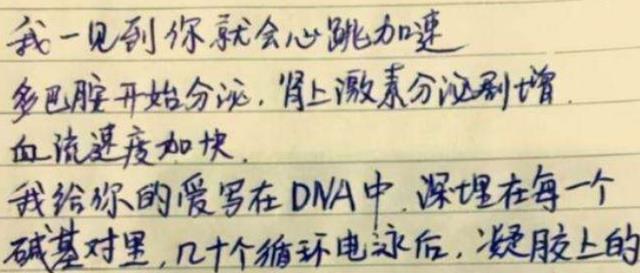 我一见到你就会心跳加速
多巴胺开始分泌,肾上激素分泌剧增.
血流速度加快.
我给你的爱写在DNA中.深埋在每一个
碱基对里,几十个循环电泳后,凝胶上的